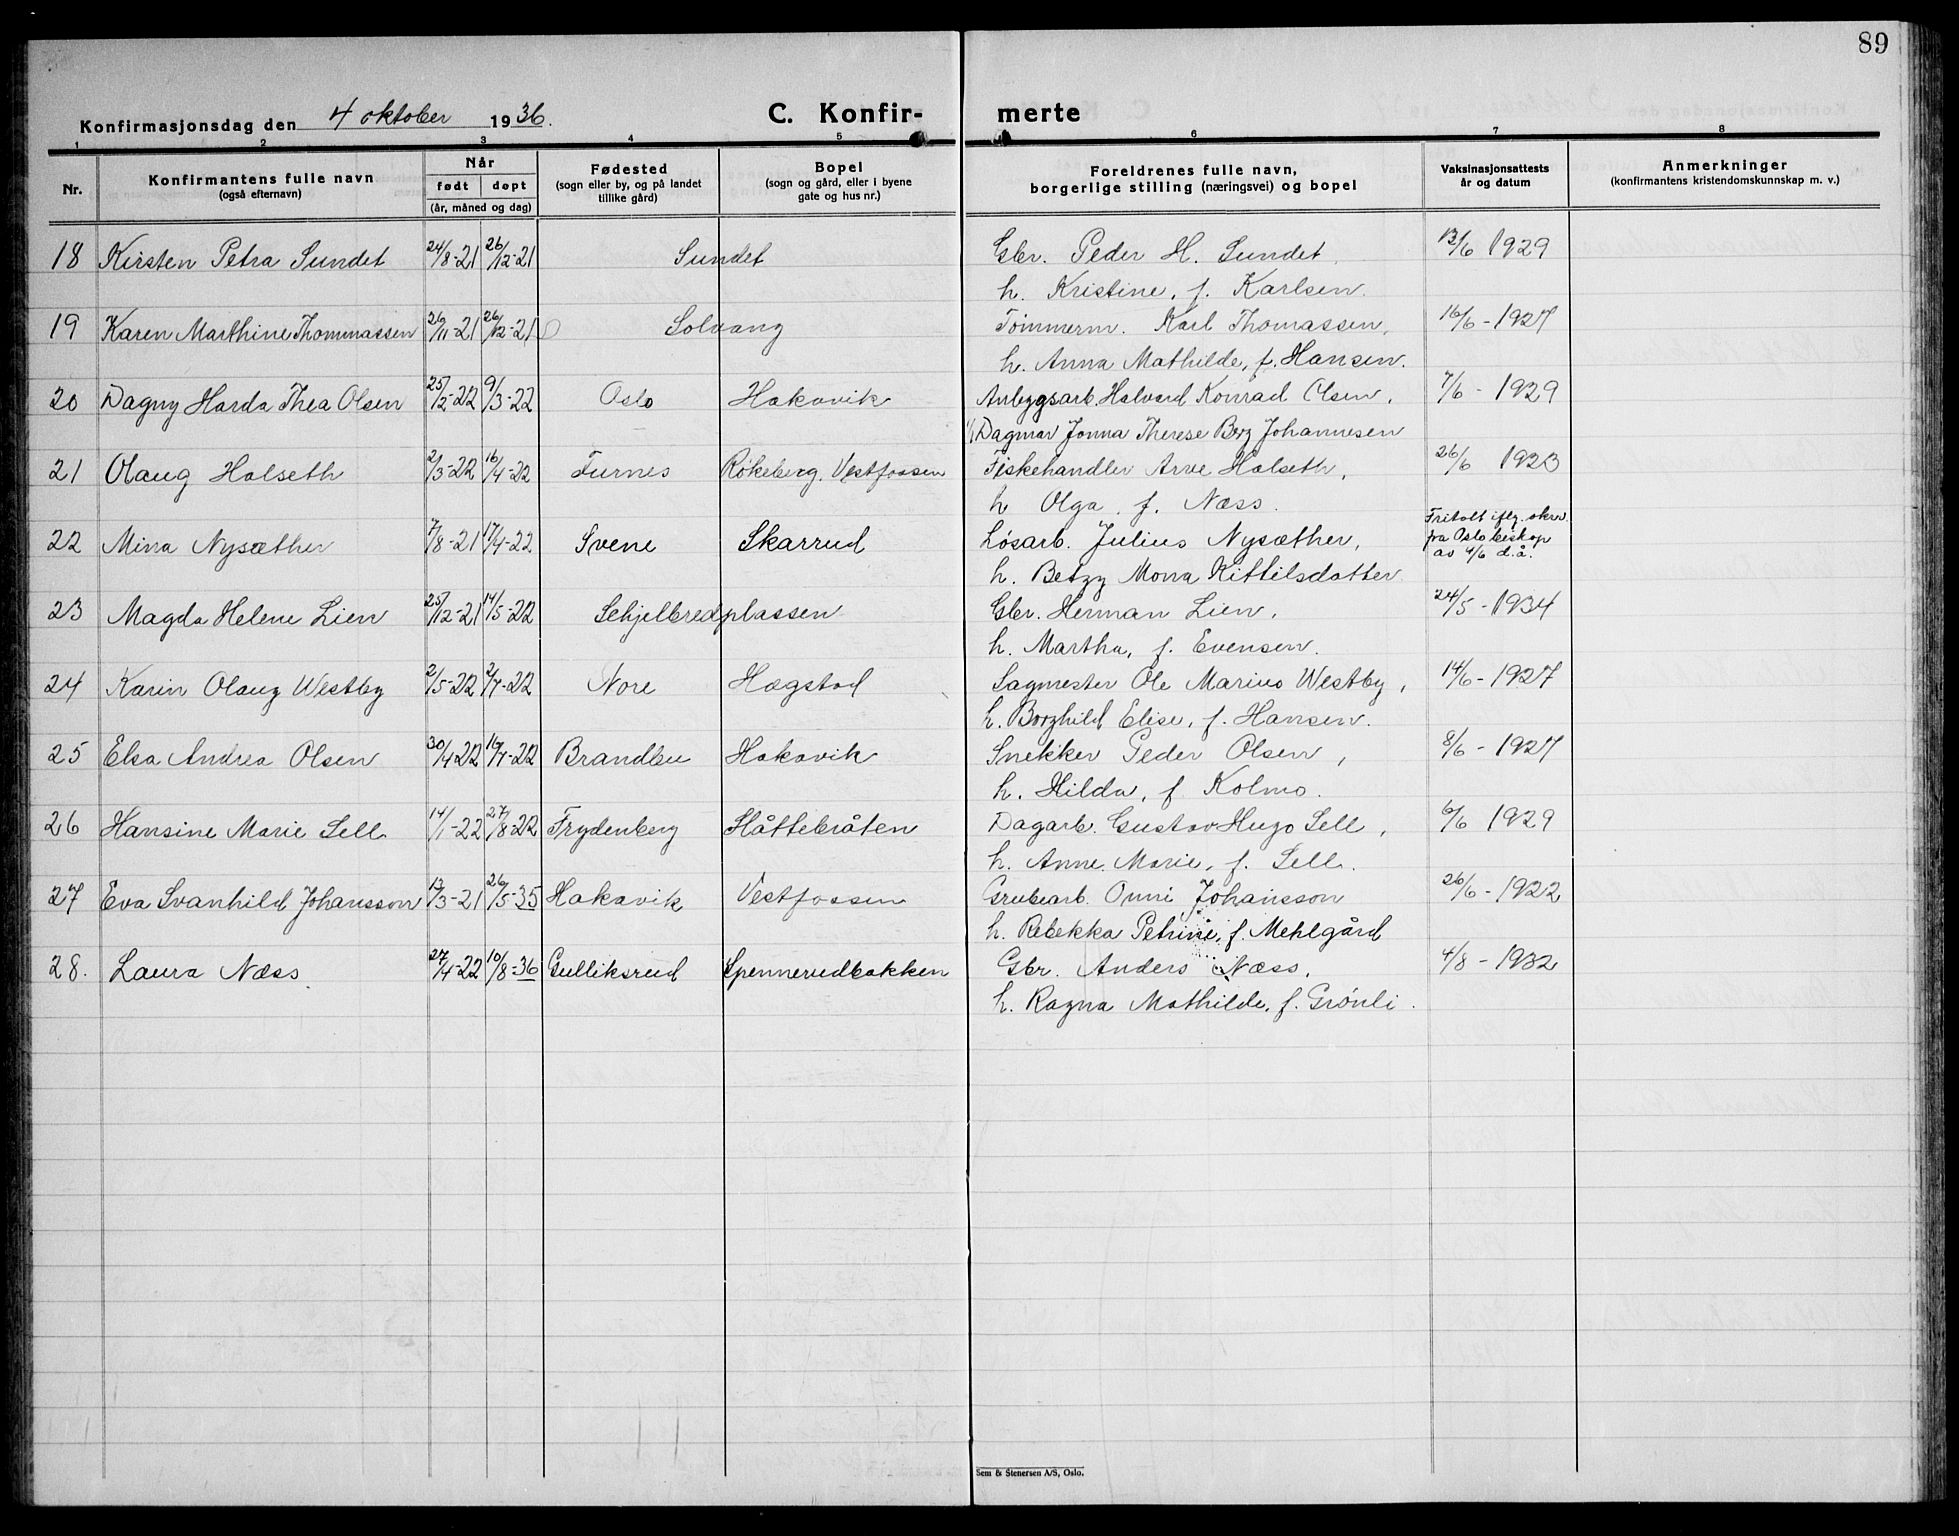 89
Konfirmasjonsdag den 4 oktober 1936. C. Konfir- merte
1 2 3 4 5 6 7 8
Nr. Konfirmantens fulle navn (også efternavn) Når født døpt (år, måned og dag) Fødested (sogn eller by, og på landet tillike gård) Bopel (sogn og gård, eller i byene gate og hus nr.) Foreldrenes fulle navn, borgerlige stilling (næringsvei) og bopel Vaksinasjonsattests år og datum Anmerkninger (konfirmantens kristendomskunnskap m. v.)
18 Kirsten Petra Sundet 24/8-21 26/12-21 Sundet Gbr. Peder H. Sundet, 13/6 1929
h. Kristine, f. Karlsen.
19 Karen Marthine Thommassen 26/11-21 26/12-21 Solvang Tømmerm. Karl Thomassen, 16/6-1927
h. Anna Mathilde, f. Hansen.
20 Dagny Harda Thea Olsen 25/2-22 9/3-22 Oslo Hakavik Anleggsarb. Halvard Konrad Olsen, 7/6-1929
Dagmar Jonna Therese Berg Johannesen
21 Olaug Halseth 2/3-22 16/4-22 Furnes Røkeberg, Vestfossen Fiskehandler Arve Halseth, 26/6 1923
h Olga, f. Næss.
22 Mina Nysæther 7/8-21 17/4-22 Svene Skarrud Løsarb. Julius Nysæther, Fritatt iflg. skrv. fra Oslo biskop av 4/6 d.å.
h. Betzy Mona Kittilsdatter.
23 Magda Helene Lien 25/12-21 14/5-22 Schjelbredplassen Gbr. Herman Lien, 24/5-1934
h. Martha, f. Evensen.
24 Karin Olaug Westby 2/5-22 2/7-22 Nore Hægstad Sagmester Ole Marius Westby, 14/6-1927
h. Borghild Elise, f. Hansen.
25 Elsa Andrea Olsen 30/4-22 16/7-22 Brandbu Hakavik Snekker Peder Olsen, 8/6-1927
h. Hilda, f. Kolmo.
26 Hansine Marie Sell 14/1-22 27/8-22 Frydenberg Håttebråten Dagarb. Gustav Hugo Sell, 6/6 1929
h. Anne Marie, f. Sell.
27 Eva Svanhild Johansson 13/3-21 26/5-35 Hakavik Vestfossen Grubearb. Onni Johansson 26/6-1922
h. Rebekka Petrine, f. Mehlgård
28. Laura Næss 27/4-22 10/8-36 Gulliksrud Spennerudbakken Gbr. Anders Næss, 4/8-1932
h. Ragna Mathilde, f. Grønli.
Sem & Stenersen A/S, Oslo.